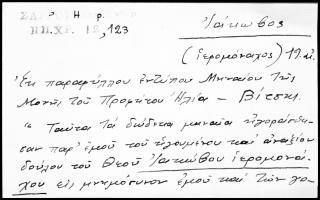 Η
ΠΠ.ΧΡ. 12, 123
Ἰάκωβος
(ἱερομόναχος) 19 αἰ.
Ἐκ παραφύλλου ἐντύπου Μηναίου τῆς
Μονῆς τοῦ Προφήτου Ἠλία – Βίτσης.
"Ταῦτα τὰ δώδεκα μηναῖα ἠγοράσθη-
σαν παρ' ἐμοῦ τοῦ ἡγουμένου καὶ ἀναξίου
δούλου τοῦ Θεοῦ Ἰακώβου ἱερομονά-
χου εἰς μνημόσυνον ἐμοῦ καὶ τῶν γο-